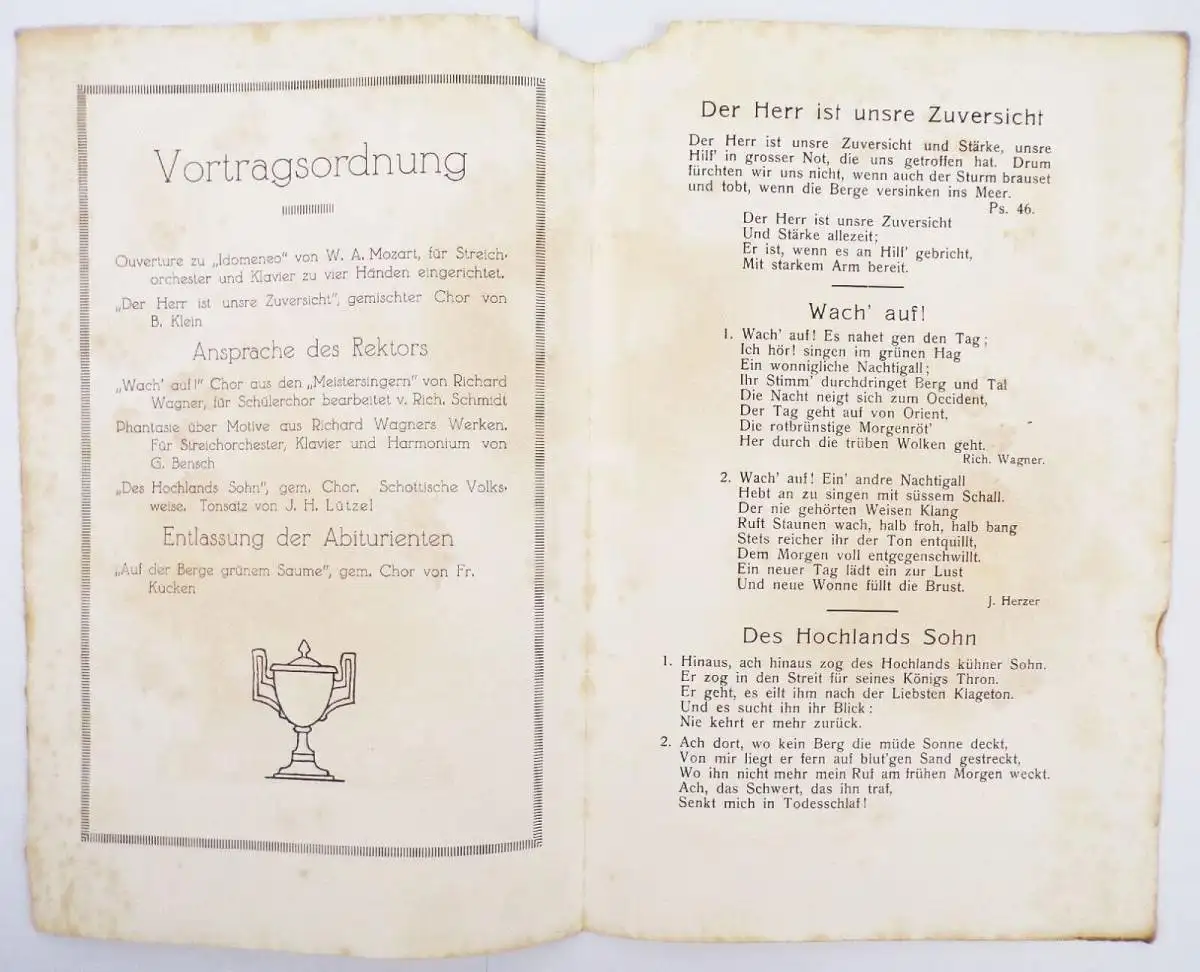 Vortragsordnung
Ouverture zu „Idomeneo" von W. A. Mozart, für Streich-
orchester und Klavier zu vier Händen eingerichtet.
„Der Herr ist unsre Zuversicht", gemischter Chor von
B. Klein
Ansprache des Rektors
„Wach' auf!" Chor aus den „Meistersingern" von Richard
Wagner, für Schülerchor bearbeitet v. Rich. Schmidt
Phantasie über Motive aus Richard Wagners Werken.
Für Streichorchester, Klavier und Harmonium von
G. Bensch
„Des Hochlands Sohn", gem. Chor. Schottische Volks-
weise. Tonsatz von J. H. Lützel
Entlassung der Abiturienten
„Auf der Berge grünem Saume", gem. Chor von Fr.
Kücken
Der Herr ist unsre Zuversicht
Der Herr ist unsre Zuversicht und Stärke, unsre
Hilf' in grosser Not, die uns getroffen hat. Drum
fürchten wir uns nicht, wenn auch der Sturm brauset
und tobt, wenn die Berge versinken ins Meer.
Ps. 46.
Der Herr ist unsre Zuversicht
Und Stärke allezeit;
Er ist, wenn es an Hilf' gebricht,
Mit starkem Arm bereit.
Wach' auf!
1. Wach' auf! Es nahet gen den Tag;
Ich hör! singen im grünen Hag
Ein wonnigliche Nachtigall;
Ihr Stimm' durchdringet Berg und Tal
Die Nacht neigt sich zum Occident,
Der Tag geht auf von Orient,
Die rotbrünstige Morgenröt'
Her durch die trüben Wolken geht.
Rich. Wagner.
2. Wach' auf! Ein' andre Nachtigall
Hebt an zu singen mit süssem Schall.
Der nie gehörten Weisen Klang
Ruft Staunen wach, halb froh, halb bang
Stets reicher ihr der Ton entquillt,
Dem Morgen voll entgegenschwillt.
Ein neuer Tag lädt ein zur Lust
Und neue Wonne füllt die Brust.
J. Herzer
Des Hochlands Sohn
1. Hinaus, ach hinaus zog des Hochlands kühner Sohn.
Er zog in den Streit für seines Königs Thron.
Er geht, es eilt ihm nach der Liebsten Klageton.
Und es sucht ihn ihr Blick:
Nie kehrt er mehr zurück.
2. Ach dort, wo kein Berg die müde Sonne deckt,
Von mir liegt er fern auf blut'gen Sand gestreckt,
Wo ihn nicht mehr mein Ruf am frühen Morgen weckt.
Ach, das Schwert, das ihn traf,
Senkt mich in Todesschlaf!